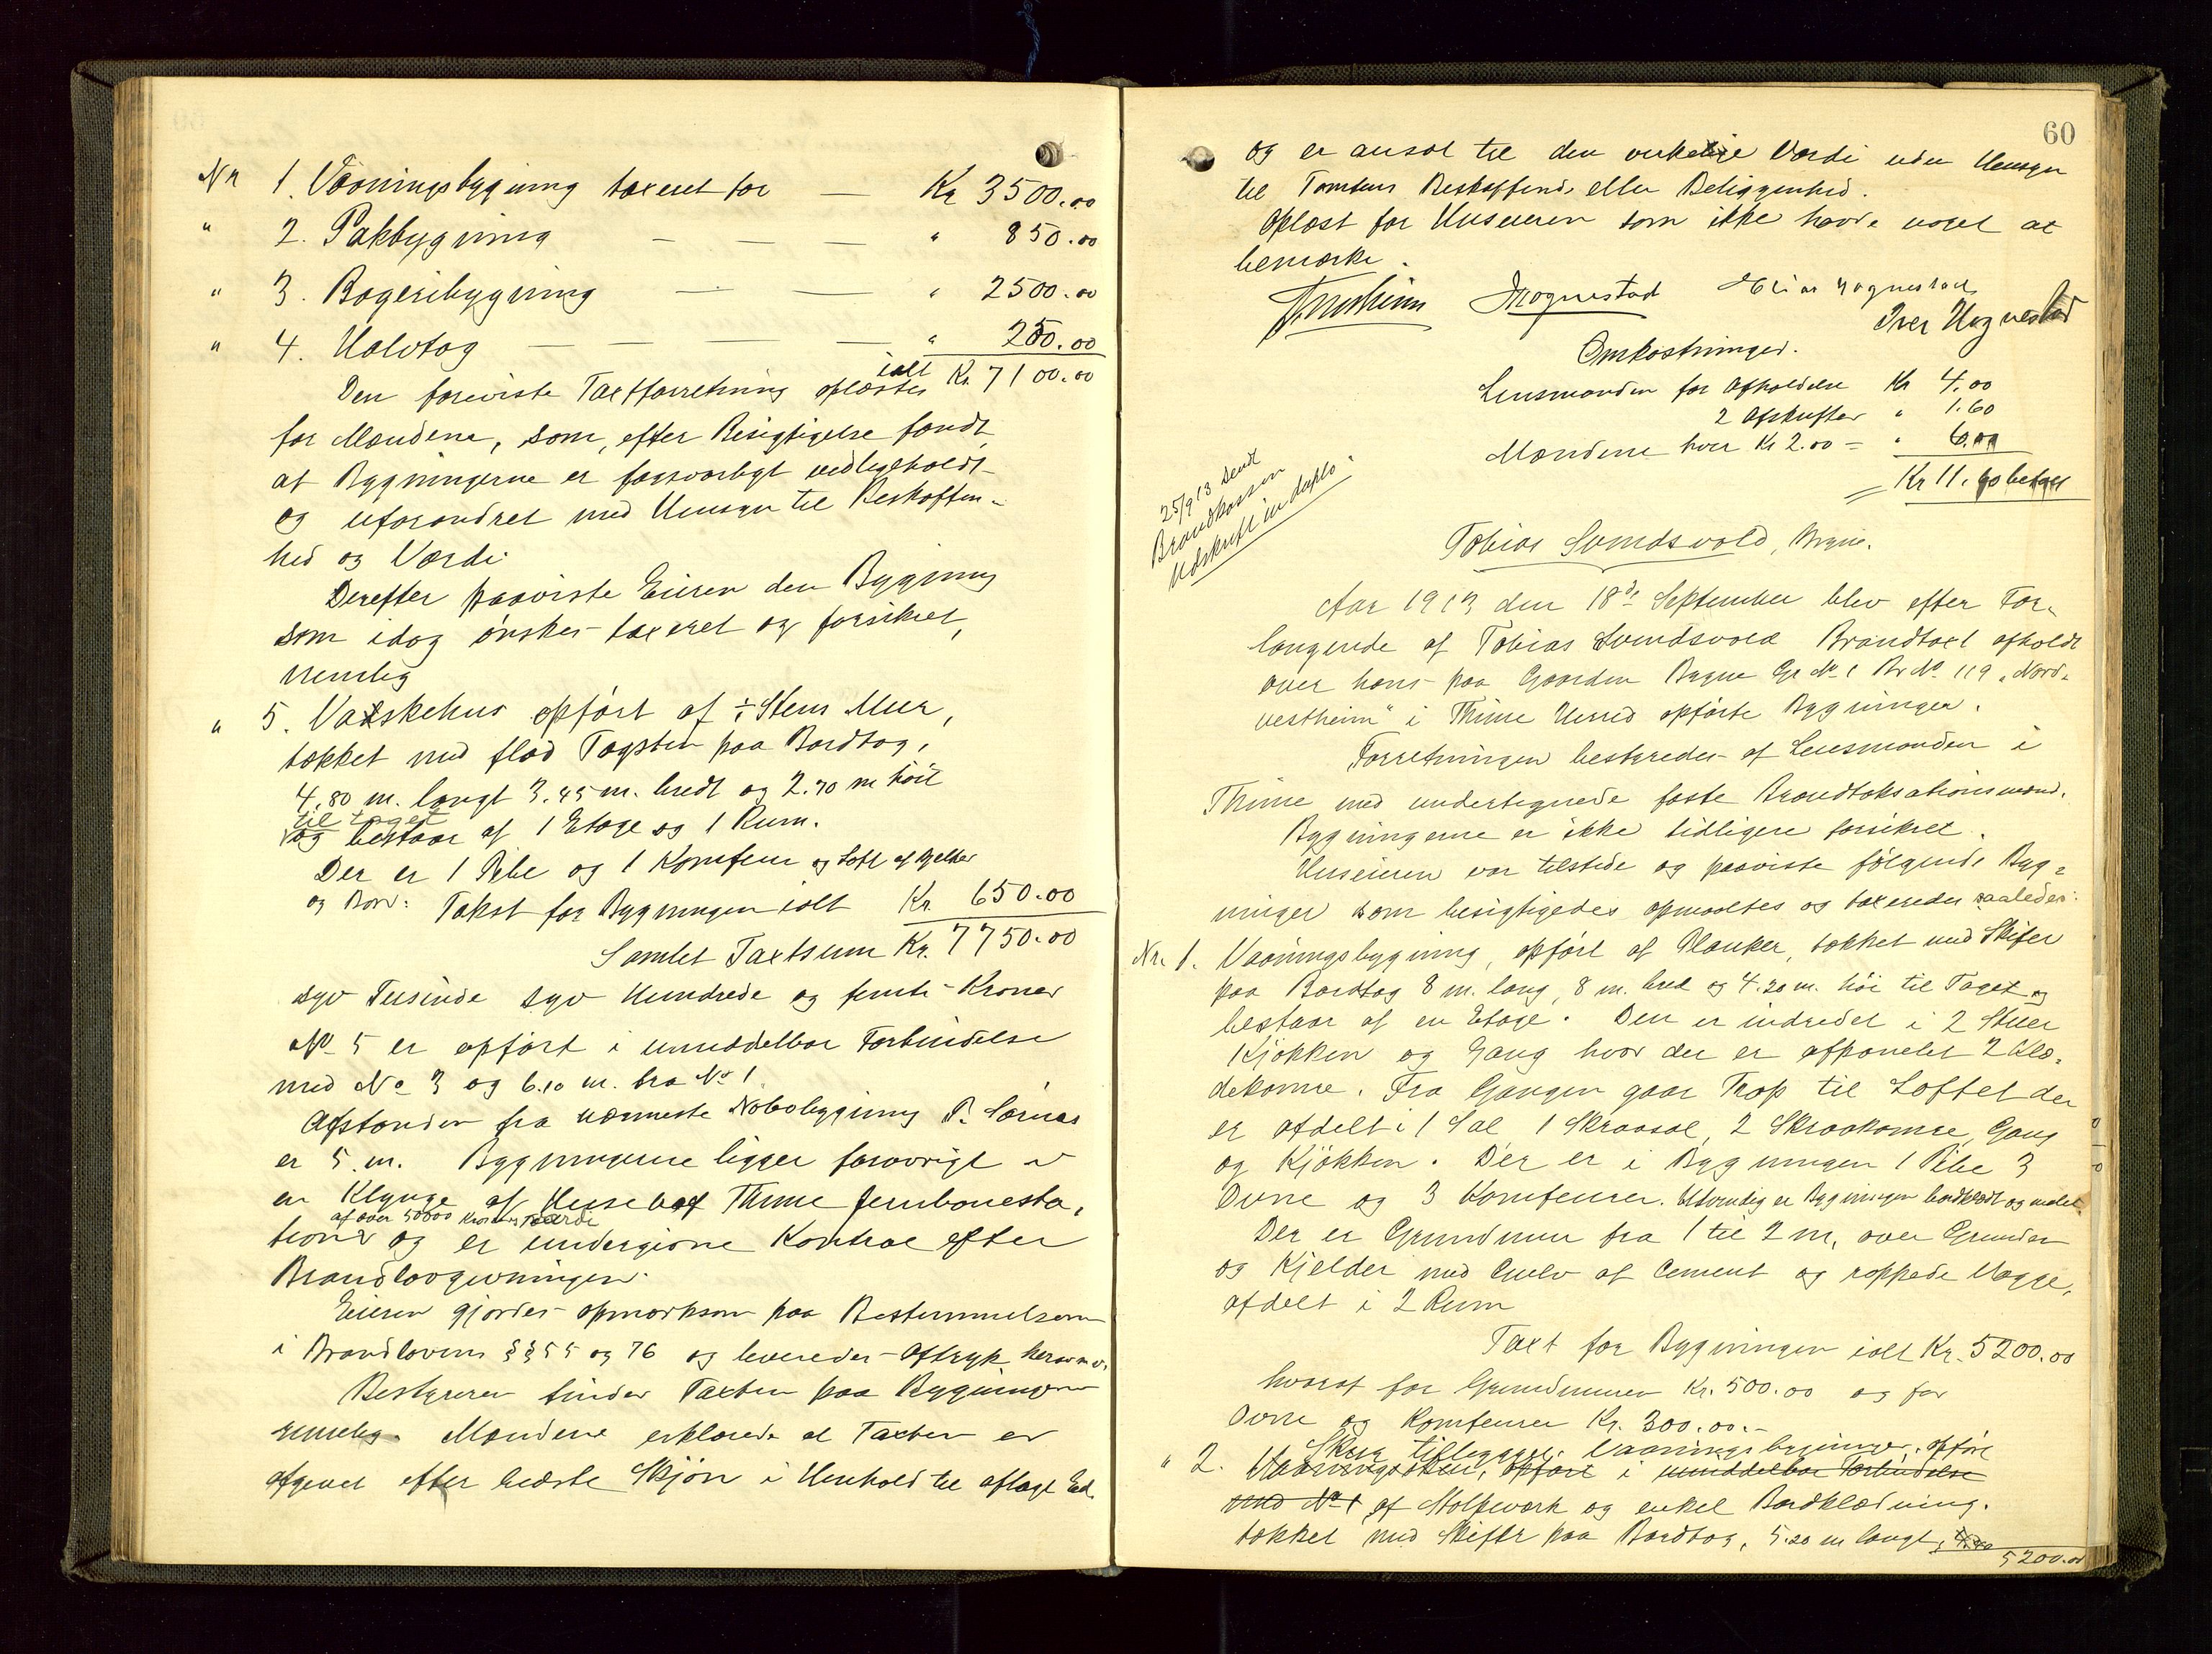 Nr 1. Vaaningsbygning taxeret for — Kr 3500.00
" 2. Pakbygning — — — " 850.00
" 3. Bageribygning — — — " 2500.00
" 4. Halvtag — — — — " 250.00
ialt Kr. 7100.00
Den foreviste Taxtforretning oplæstes
for Mændene, som, efter Besigtigelse fandt
at Bygningerne er forsvarligt vedligeholdt
og uforandret med Hensyn til Beskaffen-
hed og Værdi.
Derefter paaviste Eieren den Bygning
som idag ønskes taxeret og forsikret,
nemlig
" 5. Vaskehus opført af Stens Muur,
tækket med flad Tagsten paa Bordtag,
4.80 m. langt 3.45 m. bredt og 2.70 m høit
til taget
og bestaar af 1 Etage og 1 Rum.
Der er 1 Pibe og 1 Komfeur og Loft af Bjelker
og Bord. Takst for Bygningen ialt Kr. 650.00
Samlet Taxtsum Kr. 7750.00
syv Tusinde syv Hundrede og femti Kroner
No 5 er opført i umiddelbar Forbindelse
med No 3 og 6.10 m. fra No 1.
Afstanden fra nærmeste Nabobygning P. Sørnes
er 5 m. Bygningerne ligger forøvrigt i
en Klynge af Huse ved Thime Jernbanesta-
af over 50000 Kroners Værdi
tion og er undergivne Kontrol efter
Brandlovgivningen.
Eieren gjordes opmærksom paa Bestemmelserne
i Brandlovens §§ 55 og 76 og leveredes Aftryk herav.
Bestyreren finder Taxten paa Bygningerne
rimelig. Mændene erklærede at Taxten er
afgivet efter bedste Skjøn i Henhold til aflagt Ed.
60
og er ansat til den virkelige Værdi uden Hensyn
til Tomtens Beskaffenh. eller Beliggenhed.
Oplæst for Huseieren som ikke havde noget at
bemærke.
Hognestad Elias Hognestad
Iver Hognestad
Omkostninger.
Lensmanden for Afholdelse Kr 4.00
2 Afskrifter " 1.60
Mændene hver Kr 2.00 = " 6.00
Kr 11.60 betalt
25/9 13 sendt
Brandkassen
Udskrift in duplo.
Tobias Svindsvold, Bryne.
Aar 1913 den 18de September blev efter For-
langende af Tobias Svindsvold Brandtaxt afholdt
over hans paa Gaarden Bryne Gr No 1 Br No 119 "Nord-
vestheim" i Thime Herred opførte Bygninger.
Forretningen bestyredes af Lensmanden i
Thime med undertegnede faste Brandtaksationsmænd.
Bygningerne er ikke tidligere forsikret.
Huseieren var tilstede og paaviste følgende Byg-
ninger som besigtigedes opmaaltes og taxeredes saaledes:
Nr. 1. Vaaningsbygning, opført af Planker, tækket med Skifer
paa Bordtag 8 m. lang, 8 m. bred og 4.20 m. høi til Taget og
bestaar af en Etage. Den er indredet i 2 Stuer
Kjøkken og Gang hvor der er afpanelet 2 Klæ-
dekamre. Fra Gangen gaar Trap til Loftet der
er afdelt i 1 Sal 1 Skraasal, 2 Skraakamre, Gang
og Kjøkken. Der er i Bygningen 1 Pibe 3
Ovne og 3 Komfeurer. Udvendig er Bygningen bordklædt og malet.
Der er Grundmur fra 1 til 2 m. over Grunden
og Kjelder med Gulv af Cement og rappede Vægge,
afdelt i 2 Rum
Taxt for Bygningen ialt Kr. 5200.00
hvoraf for Grundmuren Kr. 500.00 og for
Ovne og Komfeurer Kr. 300.00.-
Skur tilbygget Vaaningsbygningen, opført
" 2. Vaaningsskur, opført i umiddelbar Forbindelse
med No 1 af Stolpeværk og enkel Bordklædning.
tækket med Skifer paa Bordtag, 5.20 m langt,
5200.00